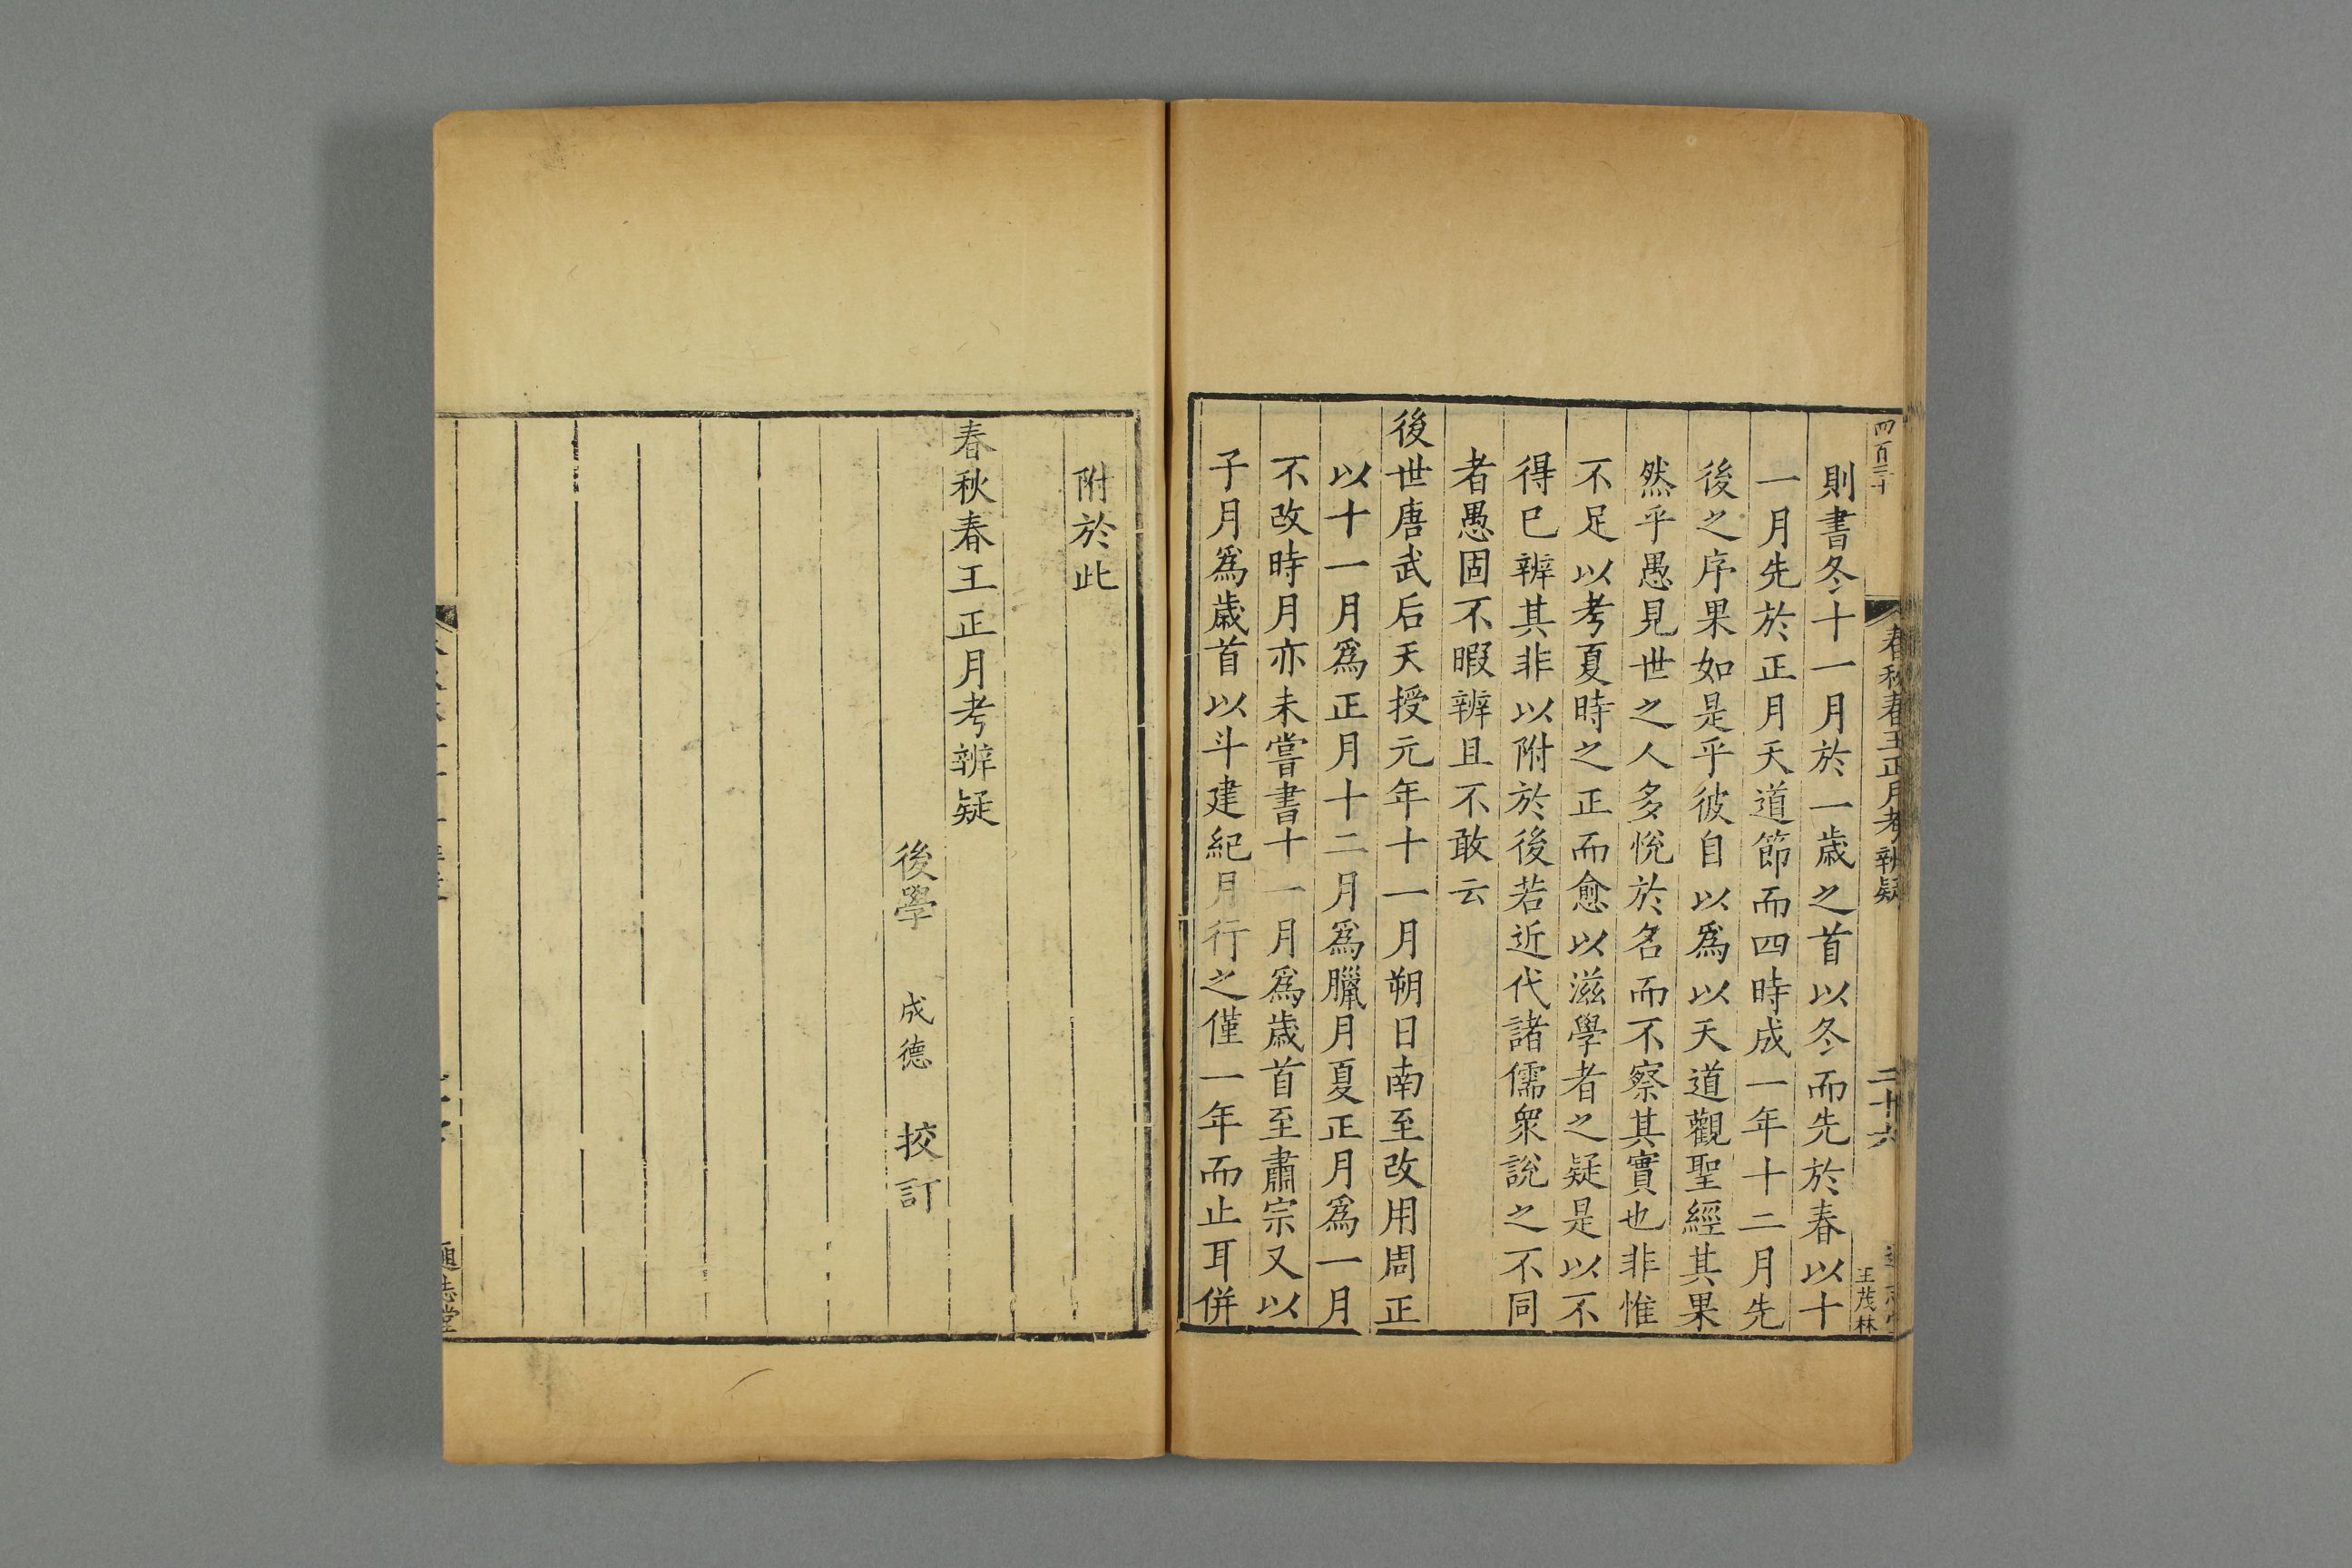 四百三十
春秋春王正月考辨疑
二十六
王茂林
則書冬十一月於一歲之首以冬而先於春以十
一月先於正月天道節而四時成一年十二月先
後之序果如是乎彼自以爲以天道觀聖經其果
然乎愚見世之人多悅於名而不察其實也非惟
不足以考夏時之正而愈以滋學者之疑是以不
得已辨其非以附於後若近代諸儒衆說之不同
者愚固不暇辨且不敢云
後世唐武后天授元年十一月朔日南至改用周正
以十一月爲正月十二月爲臘月夏正月爲一月
不改時月亦未嘗書十一月爲歲首至肅宗又以
子月爲歲首以斗建紀月行之僅一年而止耳併
附於此
春秋春王正月考辨疑
後學 成德 挍訂
通志堂